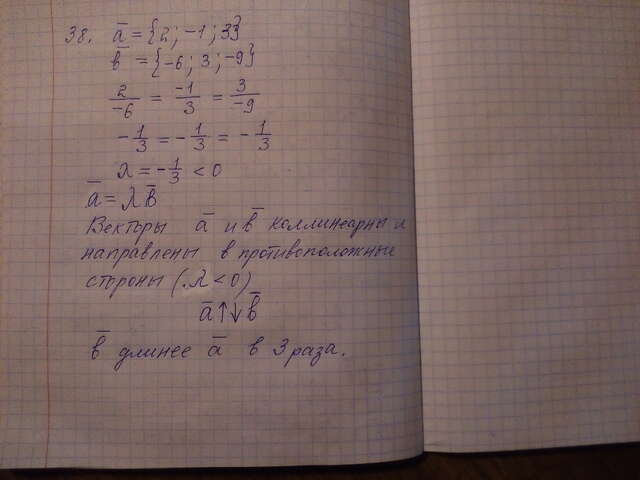 38. a̅ = {2; -1; 3}
b̅ = {-6; 3; -9}
2/-6 = -1/3 = 3/-9
-1/3 = -1/3 = -1/3
λ = -1/3 < 0
a̅ = λ b̅
Векторы a̅ и b̅ коллинеарны и
направлены в противоположные
стороны (λ < 0)
a̅ ↑↓ b̅
b̅ длинее a̅ в 3 раза.